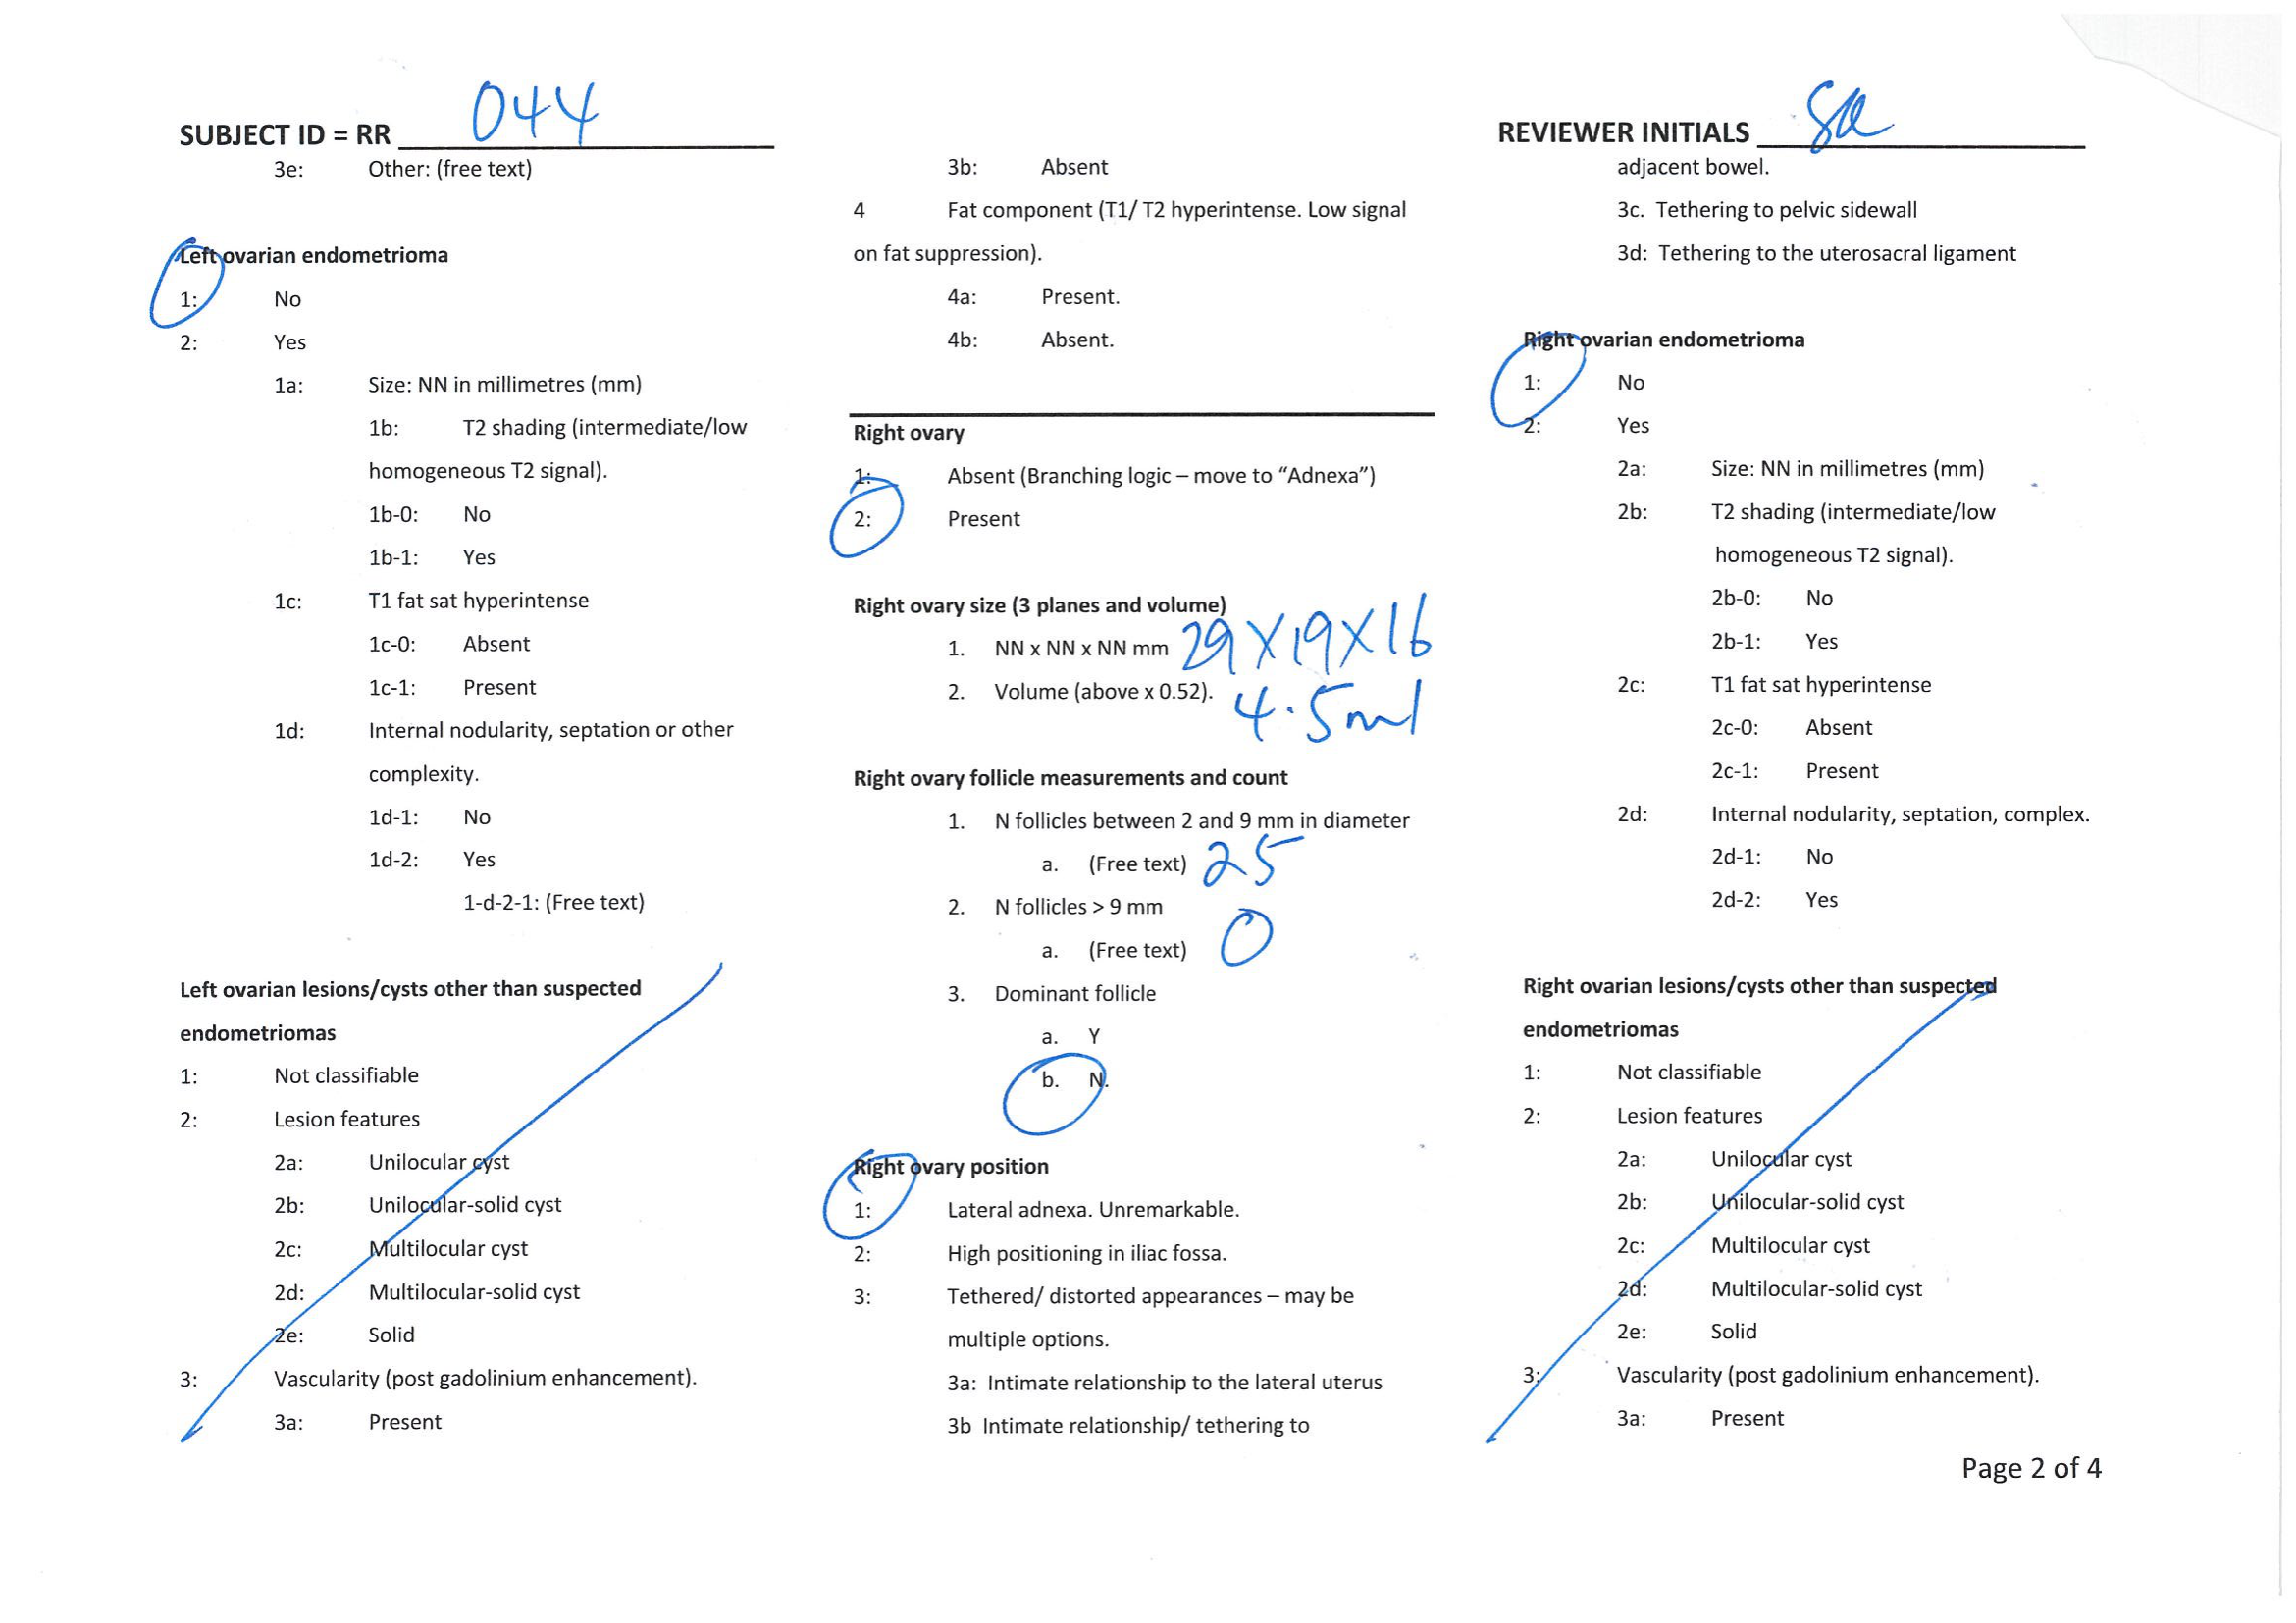 SUBJECT ID = RR 044
3e: Other: (free text)
Left ovarian endometrioma
1: No
2: Yes
1a: Size: NN in millimetres (mm)
1b: T2 shading (intermediate/low
homogeneous T2 signal).
1b-0: No
1b-1: Yes
1c: T1 fat sat hyperintense
1c-0: Absent
1c-1: Present
1d: Internal nodularity, septation or other
complexity.
1d-1: No
1d-2: Yes
1-d-2-1: (Free text)
Left ovarian lesions/cysts other than suspected
endometriomas
1: Not classifiable
2: Lesion features
2a: Unilocular cyst
2b: Unilocular-solid cyst
2c: Multilocular cyst
2d: Multilocular-solid cyst
2e: Solid
3: Vascularity (post gadolinium enhancement).
3a: Present
3b: Absent
4 Fat component (T1/ T2 hyperintense. Low signal
on fat suppression).
4a: Present.
4b: Absent.
Right ovary
1: Absent (Branching logic – move to “Adnexa”)
2: Present
Right ovary size (3 planes and volume)
1. NN x NN x NN mm 29 X 19 X 16
2. Volume (above x 0.52). 4.5ml
Right ovary follicle measurements and count
1. N follicles between 2 and 9 mm in diameter
a. (Free text) 25
2. N follicles > 9 mm
a. (Free text) 0
3. Dominant follicle
a. Y
b. N.
Right ovary position
1: Lateral adnexa. Unremarkable.
2: High positioning in iliac fossa.
3: Tethered/ distorted appearances – may be
multiple options.
3a: Intimate relationship to the lateral uterus
3b Intimate relationship/ tethering to
REVIEWER INITIALS
adjacent bowel.
3c. Tethering to pelvic sidewall
3d: Tethering to the uterosacral ligament
Right ovarian endometrioma
1: No
2: Yes
2a: Size: NN in millimetres (mm)
2b: T2 shading (intermediate/low
homogeneous T2 signal).
2b-0: No
2b-1: Yes
2c: T1 fat sat hyperintense
2c-0: Absent
2c-1: Present
2d: Internal nodularity, septation, complex.
2d-1: No
2d-2: Yes
Right ovarian lesions/cysts other than suspected
endometriomas
1: Not classifiable
2: Lesion features
2a: Unilocular cyst
2b: Unilocular-solid cyst
2c: Multilocular cyst
2d: Multilocular-solid cyst
2e: Solid
3: Vascularity (post gadolinium enhancement).
3a: Present
Page 2 of 4